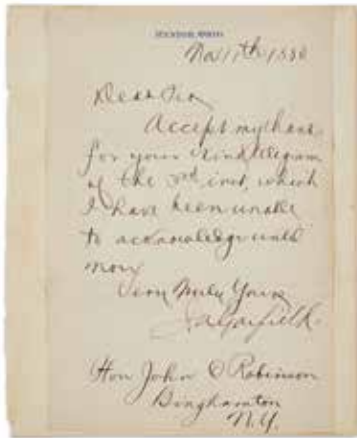 MENTOR, OHIO.
Nov 11th 1880
Dear Sir
Accept my thanks
for your kind telegram
of the 3rd inst, which
I have been unable
to acknowledge until
now.
Very Truly Yours
J A Garfield.
Hon John O Robinson
Binghamton
N.Y.